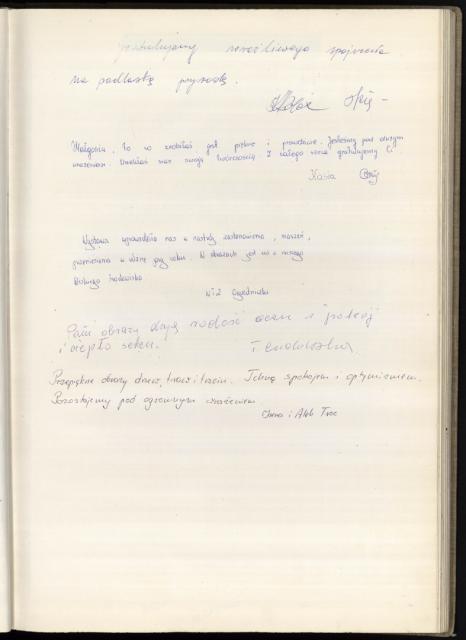 Gratulujemy wrażliwego spojrzenia
na podlaską przyrodę.
Małgosiu, to co zrobiłaś jest piękne i prawdziwe. Jesteśmy pod dużym
wrażeniem. Urzekłaś nas swoją twórczością. Z całego serca gratulujemy Ci.
Kasia
Wystawa wprowadziła nas w nastrój zastanowienia, marzeń,
przeniesienia w różne pory roku. W obrazach jest coś z naszego
bliskiego środowiska.
Pani obrazy dają radość oczu i spokój
i ciepło sercu.
Przepiękne obrazy drzew, traw i trzcin. Tchną spokojem i optymizmem.
Pozostajemy pod ogromnym wrażeniem
Irena i